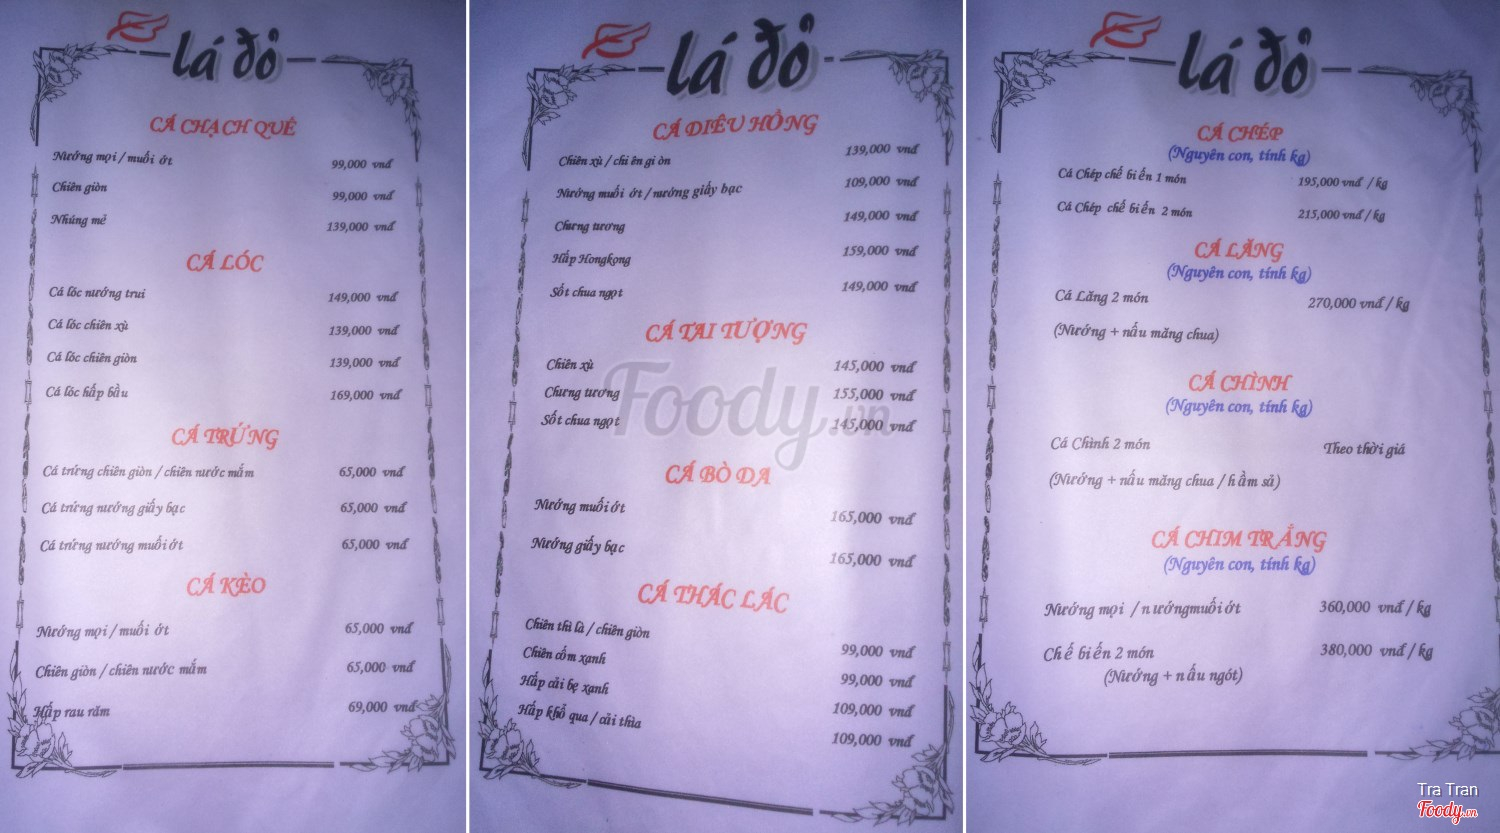 lá đỏ
CÁ CHẠCH QUẾ
Nướng mọi / muối ớt 99,000 vnđ
Chiên giòn 99,000 vnđ
Nhúng mẻ 139,000 vnđ
CÁ LÓC
Cá lóc nướng trui 149,000 vnđ
Cá lóc chiên xù 139,000 vnđ
Cá lóc chiên giòn 139,000 vnđ
Cá lóc hấp bầu 169,000 vnđ
CÁ TRỨNG
Cá trứng chiên giòn / chiên nước mắm 65,000 vnđ
Cá trứng nướng giấy bạc 65,000 vnđ
Cá trứng nướng muối ớt 65,000 vnđ
CÁ KÈO
Nướng mọi / muối ớt 65,000 vnđ
Chiên giòn / chiên nước mắm 65,000 vnđ
Hấp rau răm 69,000 vnđ
lá đỏ
CÁ DIÊU HỒNG
Chiên xù / chi ên gi òn 139,000 vnđ
Nướng muối ớt / nướng giấy bạc 109,000 vnđ
Chưng tương 149,000 vnđ
Hấp Hongkong 159,000 vnđ
Sốt chua ngọt 149,000 vnđ
CÁ TAI TƯỢNG
Chiên xù 145,000 vnđ
Chưng tương 155,000 vnđ
Sốt chua ngọt 145,000 vnđ
Foody.vn
CÁ BÒ DA
Nướng muối ớt 165,000 vnđ
Nướng giấy bạc 165,000 vnđ
CÁ THÁC LÁC
Chiên thì là / chiên giòn 99,000 vnđ
Chiên cốm xanh 99,000 vnđ
Hấp cải bẹ xanh 109,000 vnđ
Hấp khổ qua / cải thìa 109,000 vnđ
lá đỏ
CÁ CHÉP
(Nguyên con, tính kg)
Cá Chép chế biến 1 món 195,000 vnđ / kg
Cá Chép chế biến 2 món 215,000 vnđ / kg
CÁ LĂNG
(Nguyên con, tính kg)
Cá Lăng 2 món 270,000 vnđ / kg
(Nướng + nấu măng chua)
CÁ CHÌNH
(Nguyên con, tính kg)
Cá Chình 2 món Theo thời giá
(Nướng + nấu măng chua / hầm sả)
CÁ CHIM TRẮNG
(Nguyên con, tính kg)
Nướng mọi / nướngmuối ớt 360,000 vnđ / kg
Chế biến 2 món 380,000 vnđ / kg
(Nướng + nấu ngót)
Tra Tran
Foody.vn